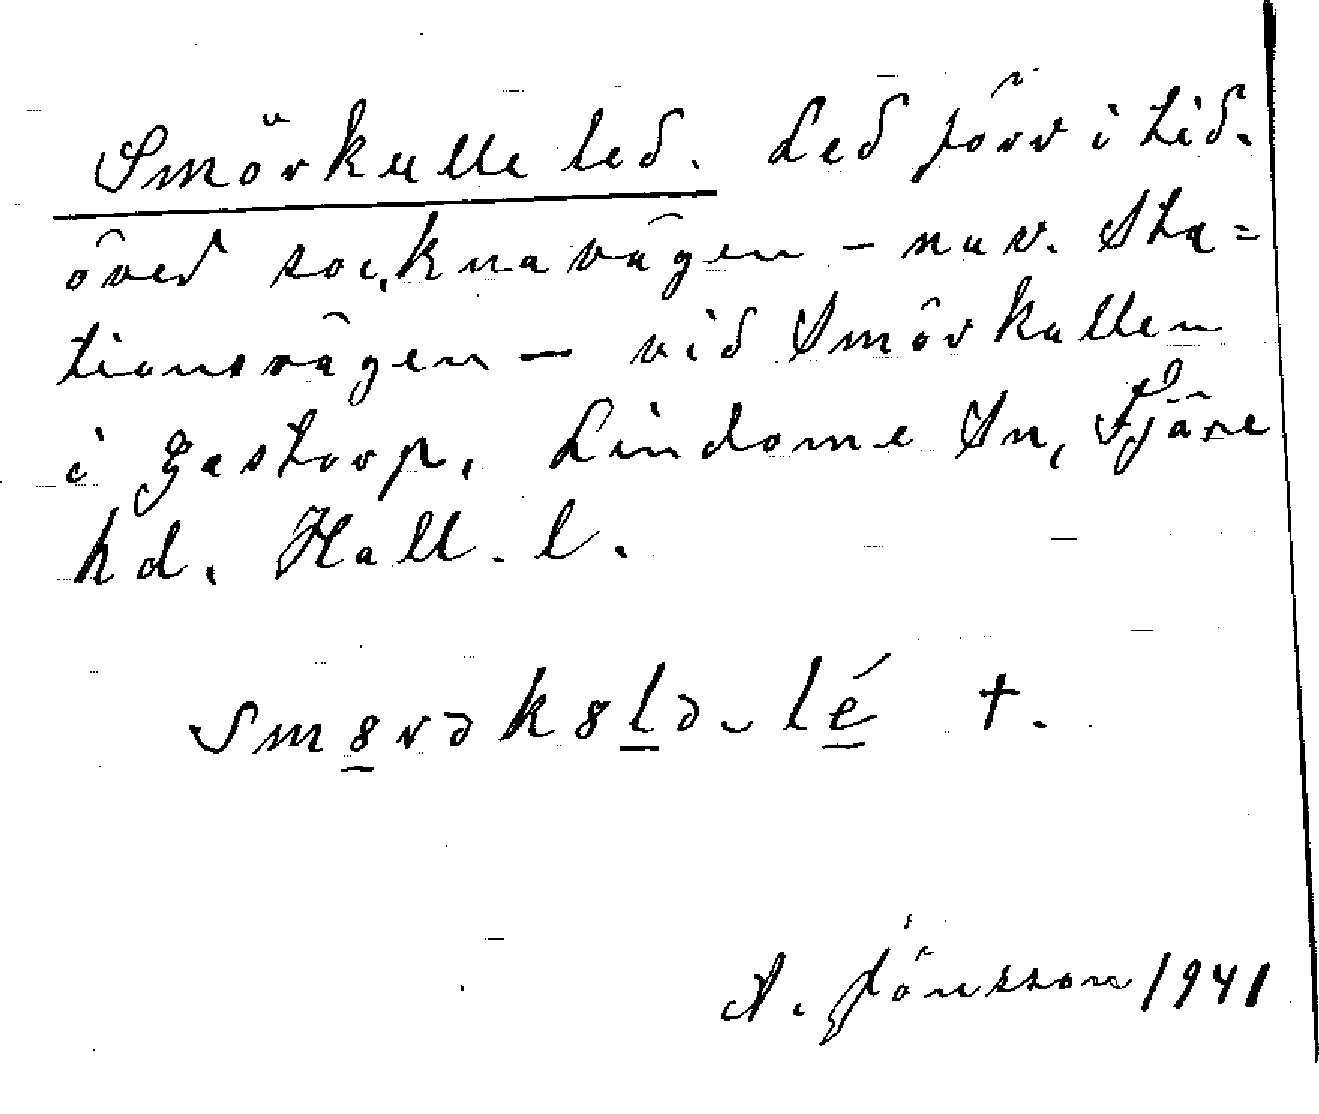 Smörkulle led. Led förr i tid.
över socknavägen - nuv. Sta=
tionsvägen - vid Smörkullen
i Gastorp, Lindome Sn, Fjäre
hd. Hall. l.
smɵrəkɵlə-lé †.
A. Jönsson 1941